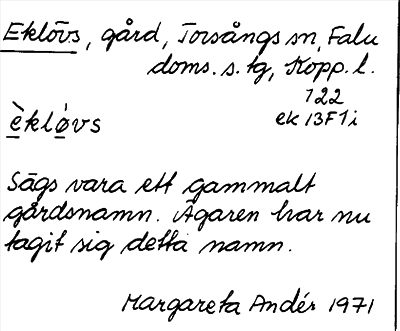 Eklövs, gård, Torsångs sn, Falu
doms. s. tg, Kopp. l.
122
ek 13F1i
èkló̱vs
Sägs vara ett gammalt
gårdsnamn. Ägaren har nu
tagit sig detta namn.
Margareta Andér 1971